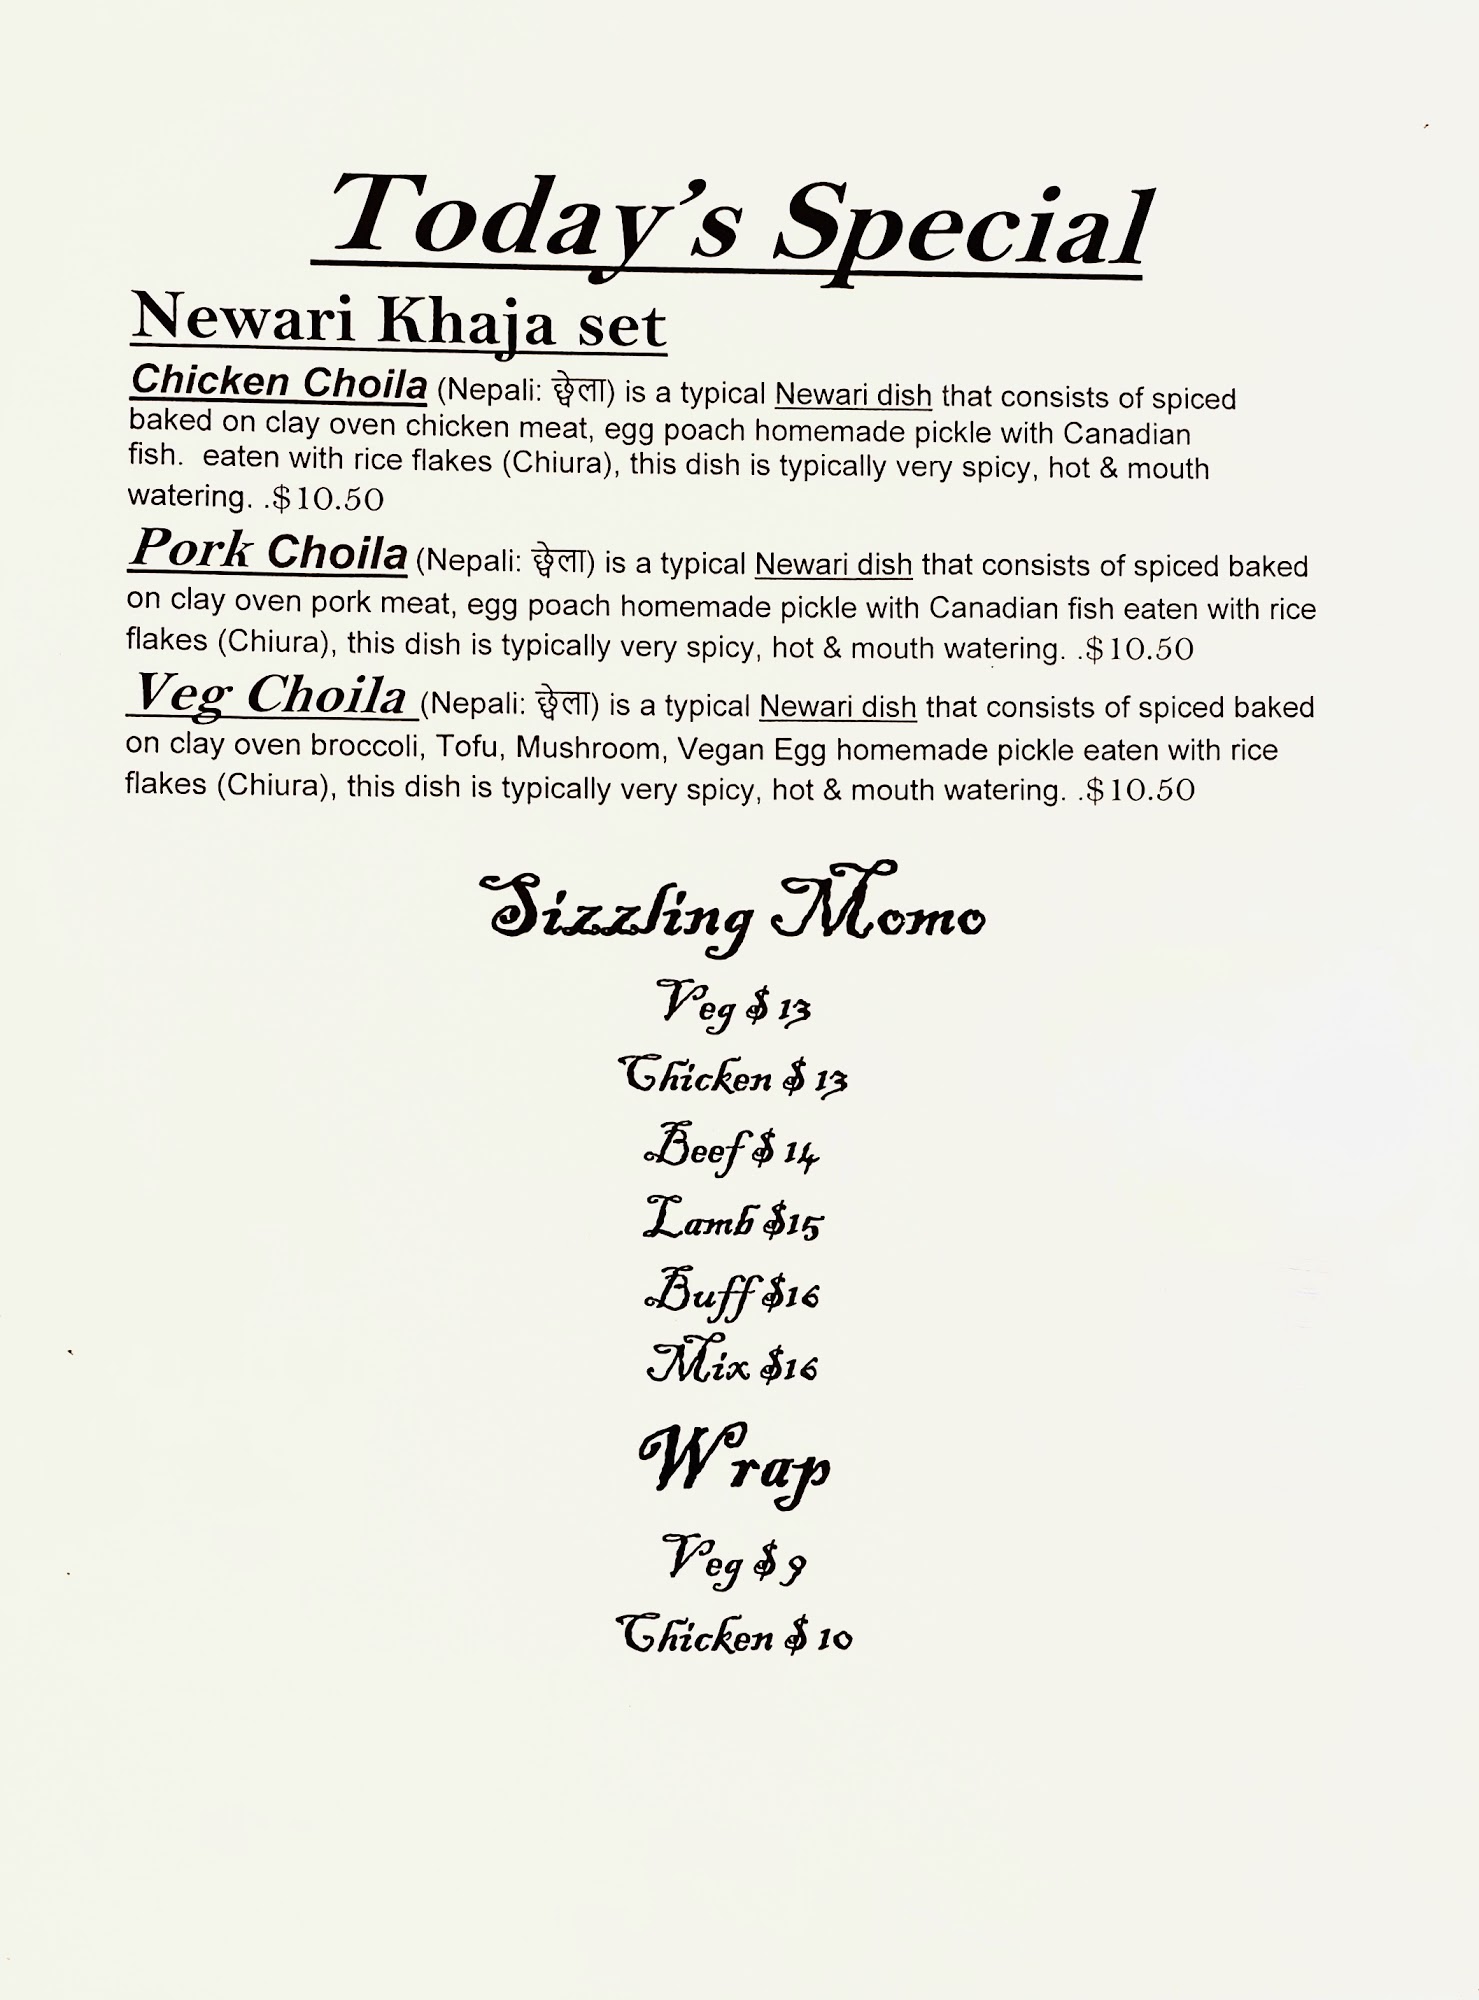 Today's Special
Newari Khaja set
Chicken Choila (Nepali: छ्वेला) is a typical Newari dish that consists of spiced
baked on clay oven chicken meat, egg poach homemade pickle with Canadian
fish.  eaten with rice flakes (Chiura), this dish is typically very spicy, hot & mouth
watering. .$10.50
Pork Choila (Nepali: छ्वेला) is a typical Newari dish that consists of spiced baked
on clay oven pork meat, egg poach homemade pickle with Canadian fish eaten with rice
flakes (Chiura), this dish is typically very spicy, hot & mouth watering. .$10.50
Veg Choila (Nepali: छ्वेला) is a typical Newari dish that consists of spiced baked
on clay oven broccoli, Tofu, Mushroom, Vegan Egg homemade pickle eaten with rice
flakes (Chiura), this dish is typically very spicy, hot & mouth watering. .$10.50
Sizzling Momo
Veg $ 13
Chicken $ 13
Beef $ 14
Lamb $15
Buff $16
Mix $16
Wrap
Veg $ 9
Chicken $ 10